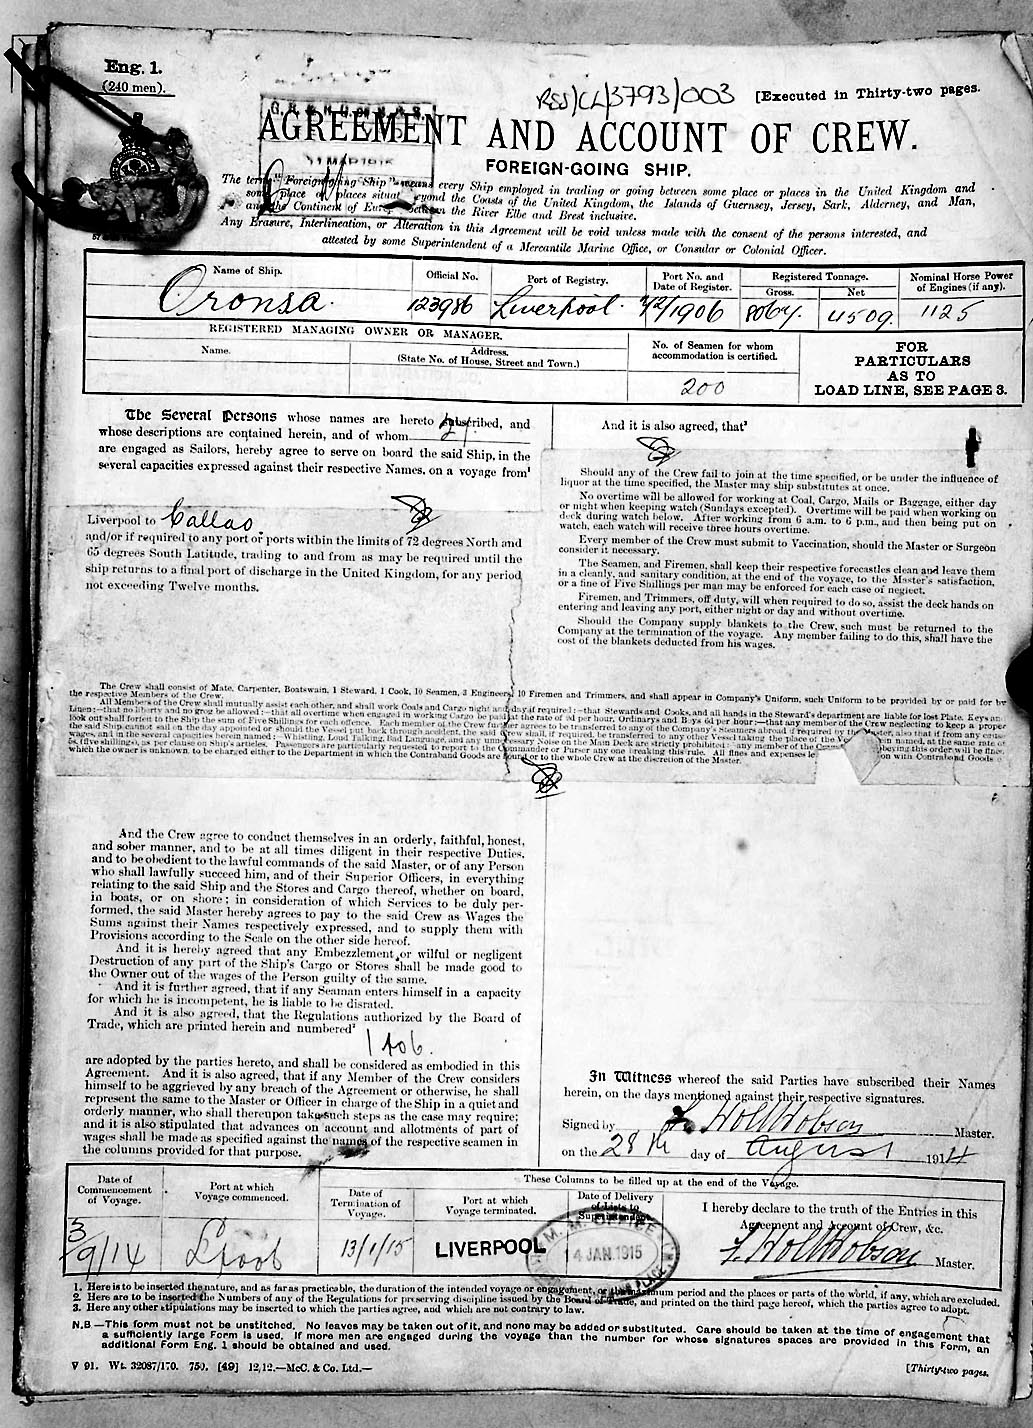 Eng. 1.
(240 men).
RSS/CL/3793/003
[Executed in Thirty-two pages.
AGREEMENT AND ACCOUNT OF CREW.
FOREIGN-GOING SHIP.
The term "Foreign-going Ship" means every Ship employed in trading or going between some place or places in the United Kingdom and
some place or places situate beyond the Coasts of the United Kingdom, the Islands of Guernsey, Jersey, Sark, Alderney, and Man,
and the Continent of Europe between the River Elbe and Brest inclusive.
Any Erasure, Interlineation, or Alteration in this Agreement will be void unless made with the consent of the persons interested, and
attested by some Superintendent of a Mercantile Marine Office, or Consular or Colonial Officer.
Name of Ship. Official No. Port of Registry. Port No. and Date of Register. Registered Tonnage. Gross. Net Nominal Horse Power of Engines (if any).
Oronsa. 123986 Liverpool. 42/1906 8067. 4509. 1125
REGISTERED MANAGING OWNER OR MANAGER.
Name. Address. (State No. of House, Street and Town.)
No. of Seamen for whom accommodation is certified.
200
FOR
PARTICULARS
AS TO
LOAD LINE, SEE PAGE 3.
The Several Persons whose names are hereto subscribed, and
whose descriptions are contained herein, and of whom
are engaged as Sailors, hereby agree to serve on board the said Ship, in the
several capacities expressed against their respective Names, on a voyage from¹
Liverpool to Callao
and/or if required to any port or ports within the limits of 72 degrees North and
65 degrees South Latitude, trading to and from as may be required until the
ship returns to a final port of discharge in the United Kingdom, for any period
not exceeding Twelve months.
And it is also agreed, that³
Should any of the Crew fail to join at the time specified, or be under the influence of
liquor at the time specified, the Master may ship substitutes at once.
No overtime will be allowed for working at Coal, Cargo, Mails or Baggage, either day
or night when keeping watch (Sundays excepted). Overtime will be paid when working on
deck during watch below. After working from 6 a.m. to 6 p.m., and then being put on
watch, each watch will receive three hours overtime.
Every member of the Crew must submit to Vaccination, should the Master or Surgeon
consider it necessary.
The Seamen, and Firemen, shall keep their respective forecastles clean and leave them
in a cleanly, and sanitary condition, at the end of the voyage, to the Master's satisfaction,
or a fine of Five Shillings per man may be enforced for each case of neglect.
Firemen, and Trimmers, off duty, will when required to do so, assist the deck hands on
entering and leaving any port, either night or day and without overtime.
Should the Company supply blankets to the Crew, such must be returned to the
Company at the termination of the voyage. Any member failing to do this, shall have the
cost of the blankets deducted from his wages.
The Crew shall consist of Mate, Carpenter, Boatswain, 1 Steward, 1 Cook, 10 Seamen, 3 Engineers, 10 Firemen and Trimmers, and shall appear in Company's Uniform, such Uniform to be provided by or paid for by
the respective Members of the Crew.
All Members of the Crew shall mutually assist each other, and shall work Coals and Cargo night and day if required:—that Stewards and Cooks, and all hands in the Steward's department are liable for lost Plate, Keys and
Linen:—that no liberty and no grog be allowed:—that all overtime when engaged in working Cargo be paid at the rate of 9d per hour, Ordinarys and Boys 6d per hour:—that any member of the Crew neglecting to keep a proper
look out shall forfeit to the Ship the sum of Five Shillings for each offence. Each member of the Crew further agrees to be transferred to any of the Company's Steamers abroad if required by the Master, also that if from any cause
the said Ship cannot sail on the day appointed or should the Vessel put back through accident, the said Crew shall, if required, be transferred to any other Vessel taking the place of the named, at the same rate of
wages, and in the several capacities herein named: Whistling, Loud Talking, Bad Language, and any unnecessary Noise on the Main Deck are strictly prohibited: any member of the beying this order will be fined
5s (five shillings), as per clause on Ship's articles. Passengers are particularly requested to report to the Commander or Purser any one breaking this rule. All fines and expenses on with Contraband Goods
which the owner is unknown, to be charged either to the Department in which the Contraband Goods are found or to the whole Crew at the discretion of the Master.
And the Crew agree to conduct themselves in an orderly, faithful, honest,
and sober manner, and to be at all times diligent in their respective Duties,
and to be obedient to the lawful commands of the said Master, or of any Person
who shall lawfully succeed him, and of their Superior Officers, in everything
relating to the said Ship and the Stores and Cargo thereof, whether on board,
in boats, or on shore; in consideration of which Services to be duly per-
formed, the said Master hereby agrees to pay to the said Crew as Wages the
Sums against their Names respectively expressed, and to supply them with
Provisions according to the Scale on the other side hereof.
And it is hereby agreed that any Embezzlement, or wilful or negligent
Destruction of any part of the Ship's Cargo or Stores shall be made good to
the Owner out of the wages of the Person guilty of the same.
And it is further agreed, that if any Seaman enters himself in a capacity
for which he is incompetent, he is liable to be disrated.
And it is also agreed, that the Regulations authorized by the Board of
Trade, which are printed herein and numbered²
1 to 6.
are adopted by the parties hereto, and shall be considered as embodied in this
Agreement. And it is also agreed, that if any Member of the Crew considers
himself to be aggrieved by any breach of the Agreement or otherwise, he shall
represent the same to the Master or Officer in charge of the Ship in a quiet and
orderly manner, who shall thereupon take such steps as the case may require;
and it is also stipulated that advances on account and allotments of part of
wages shall be made as specified against the names of the respective seamen in
the columns provided for that purpose.
In Witness whereof the said Parties have subscribed their Names
herein, on the days mentioned against their respective signatures.
Signed by F. Holt Hobson Master.
on the 28th day of August 1914
These Columns to be filled up at the end of the Voyage.
Date of Commencement of Voyage. Port at which Voyage commenced. Date of Termination of Voyage. Port at which Voyage terminated. Date of Delivery of Lists to Superintendent.
3/9/14 Lpool 13/1/15 LIVERPOOL
M. M. OFFICE
14 JAN. 1915
I hereby declare to the truth of the Entries in this
Agreement and Account of Crew, &c.
F. Holt Hobson Master.
1. Here is to be inserted the nature, and as far as practicable, the duration of the intended voyage or engagement, or the maximum period and the places or parts of the world, if any, which are excluded.
2. Here are to be inserted the Numbers of any of the Regulations for preserving discipline issued by the Board of Trade, and printed on the third page hereof, which the parties agree to adopt.
3. Here any other stipulations may be inserted to which the parties agree, and which are not contrary to law.
N.B.—This form must not be unstitched. No leaves may be taken out of it, and none may be added or substituted. Care should be taken at the time of engagement that
a sufficiently large Form is used. If more men are engaged during the voyage than the number for whose signatures spaces are provided in this Form, an
additional Form Eng. 1 should be obtained and used.
V 91. Wt. 32087/170. 750. [49] 12,12.—McC. & Co. Ltd.—
[Thirty-two pages.